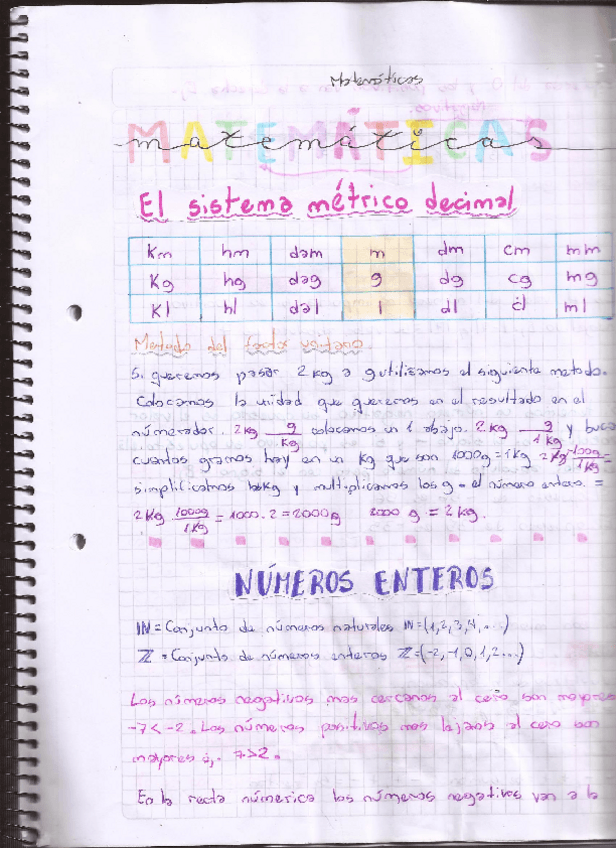 Matemáticas
MATEMÁTICAS
matemáticas
El sistema métrico decimal
Km hm dam m dm cm mm
Kg hg dag g dg cg mg
Kl hl dal l dl cl ml
Metodo del factor unitario.
Si queremos pasar 2 kg a g utilizamos el siguiente metodo.
Colocamos la unidad que queremos en el resultado en el
númerador. 2kg g/Kg colocamos un 1 abajo. 2 kg g/1 Kg y
cuantos gramos hay en un Kg que son 1000g = 1kg 2kg
simplificamos los kg y multiplicamos los g - el número entero. =
2 Kg 1000g/1Kg = 1000. 2 = 2000g 2000 g = 2 kg.
NÚMEROS ENTEROS
ℕ = Conjunto de números naturales ℕ=(1,2,3,4,...)
ℤ = Conjunto de números enteros ℤ=(-2,-1,0,1,2...)
Los números negativos mas cercanos al cero son mayores
-7 < -2. Los números positivos mas lejanos al cero son
mayores 7>2.
En la recta númerica los números negativos van a la